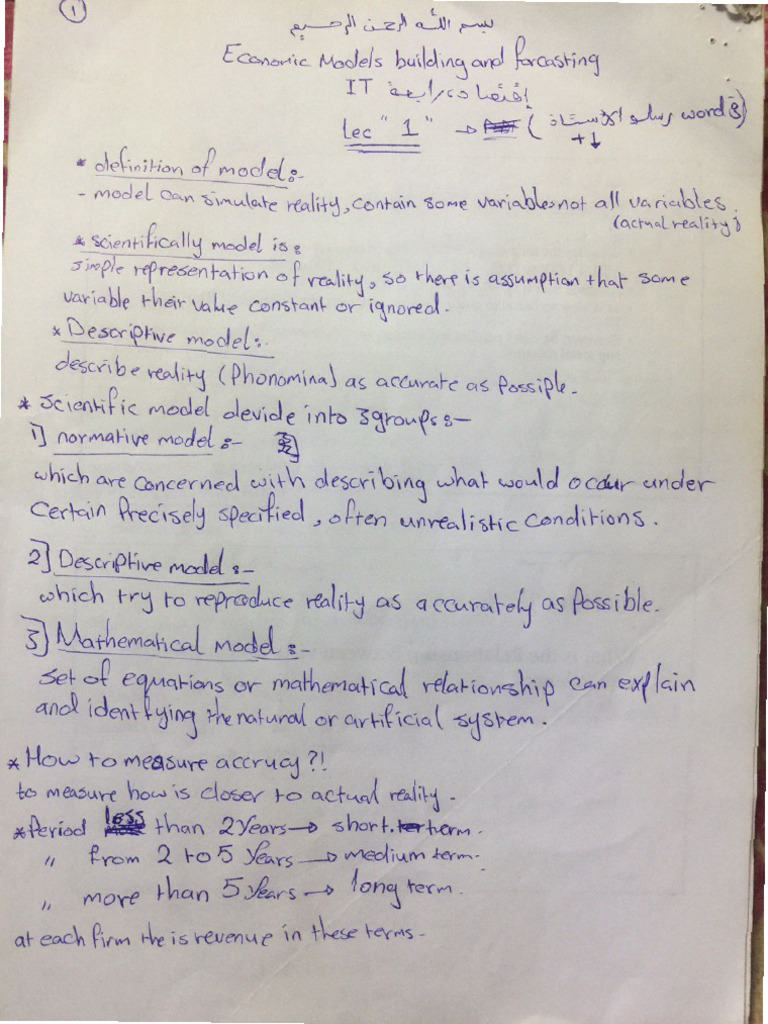 1
بسم الله الرحمن الرحيم
Economic Models building and forcasting
إقتصاد رابعة IT
lec "1" → (رسلو الأستاذ word
+1
* definition of model:-
- model can simulate reality, contain some variables not all variables.
(actual reality)
* scientifically model is:
simple representation of reality, so there is assumption that some
variable their value constant or ignored.
* Descriptive model:-
describe reality (Phonomina) as accurate as Possiple.
* scientific model devide into 3groups:-
1] normative model:-
which are concerned with describing what would occur under
Certain Precisely specified, often unrealistic conditions.
2] Descriptive model:-
which try to reproduce reality as accurately as Possible.
3] Mathematical model:-
set of equations or mathematical relationship can explain
and identfying the natural or artificial system.
* How to measure accrucy?!
to measure how is closer to actual reality.
* Period less than 2 years → short term.
" from 2 to 5 years → medium term.
" more than 5 years → long term.
at each firm the is revenue in these terms.